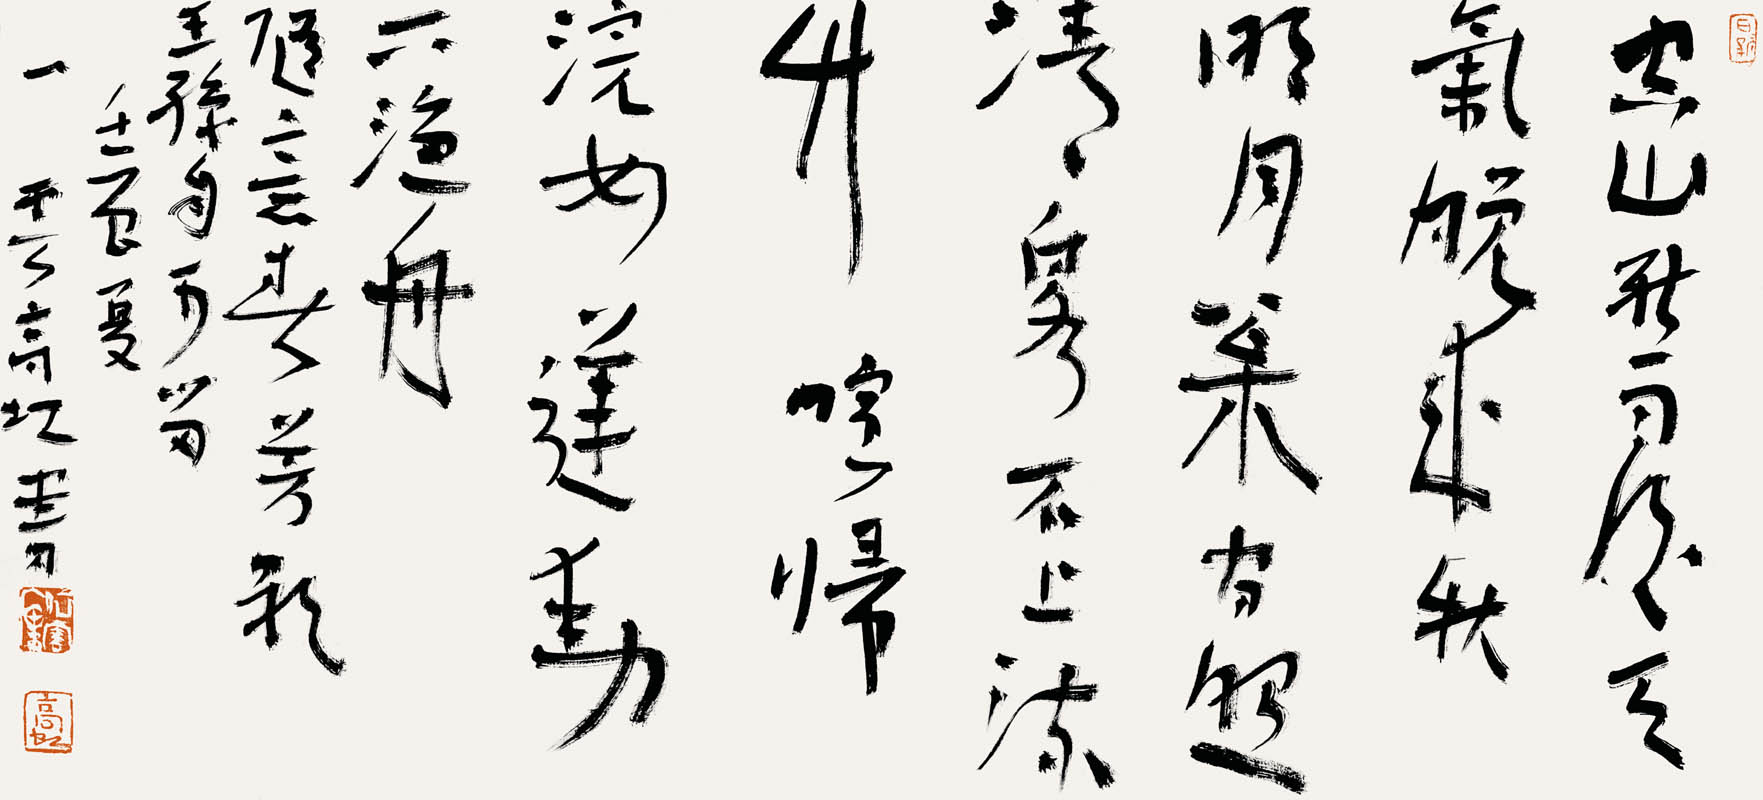 空山新雨後天
氣晚來秋
明月松間照
清泉石上流
竹喧歸
浣女蓮動
下漁舟
隨意春芳歇
王孫自可留
壬辰夏
高虹書